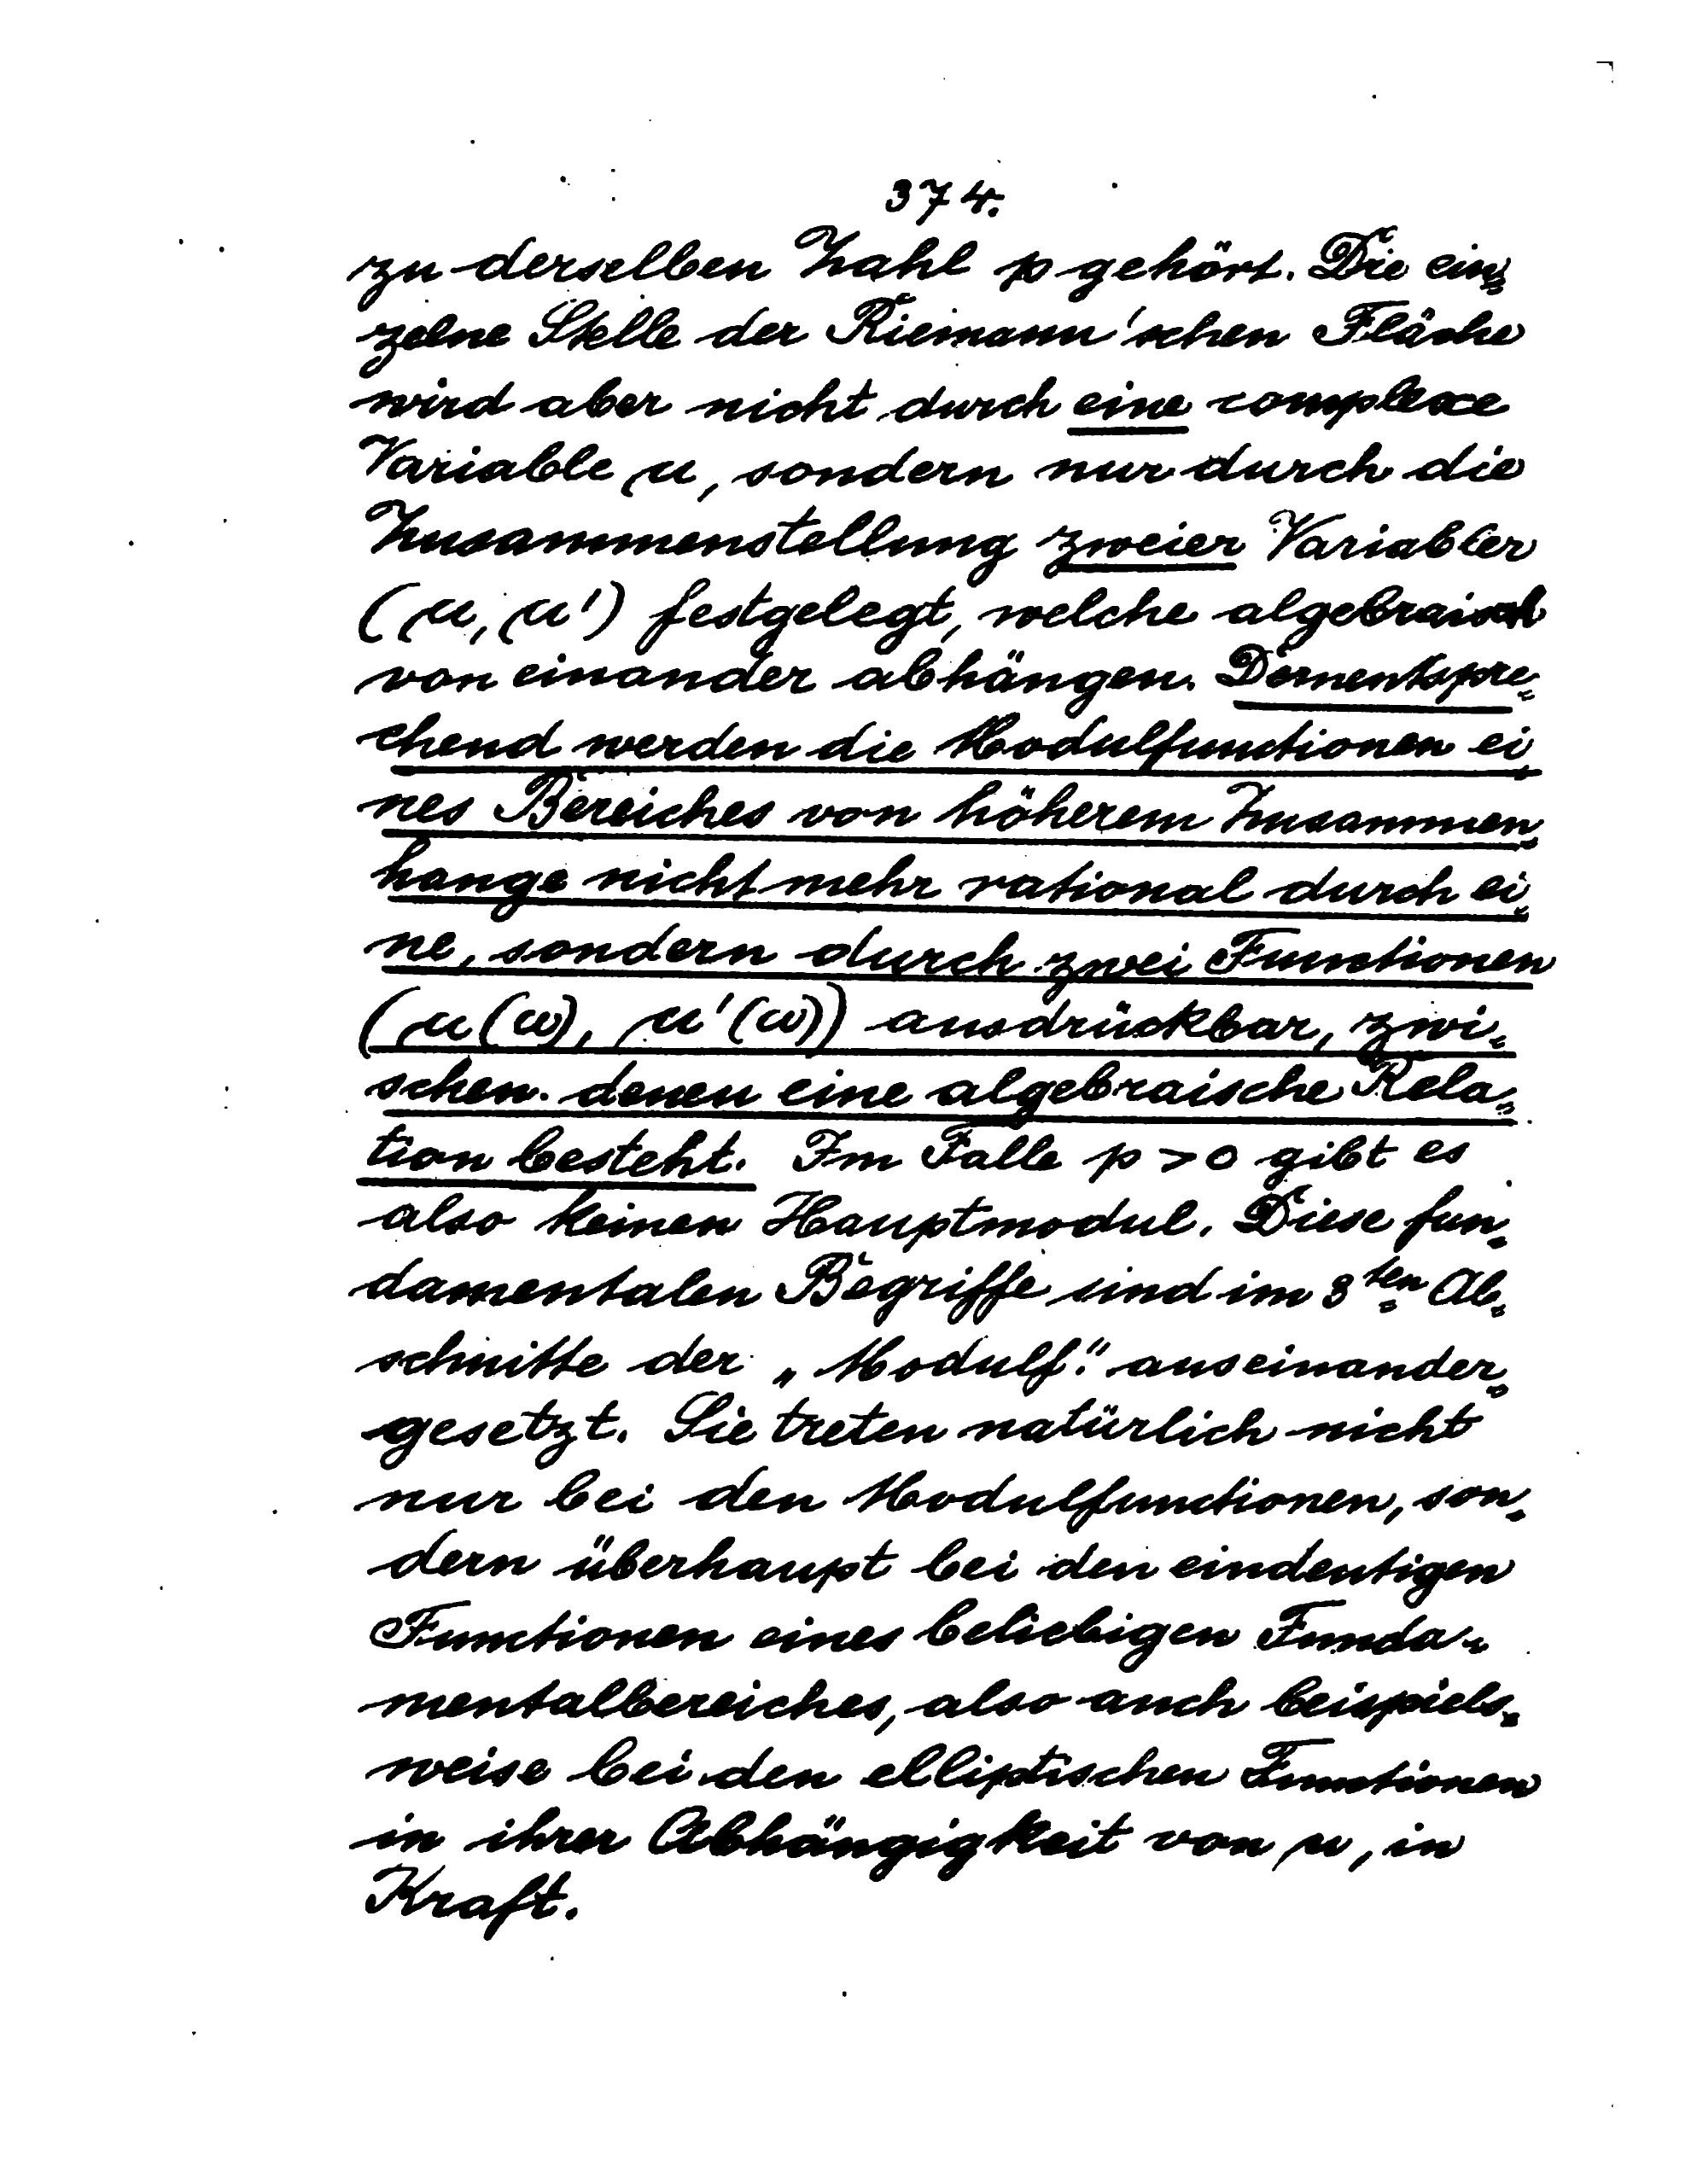 374.
zu derselben Zahl p gehört. Die ein=
zelne Stelle der Riemann'schen Fläche
wird aber nicht durch eine complexe
Variable μ, sondern nur durch die
Zusammenstellung zweier Variabler
(μ, μ') festgelegt, welche algebraisch
von einander abhängen. Dementspre=
chend werden die Modulfunctionen ei=
nes Bereiches von höherem Zusammen=
hange nicht mehr rational durch ei=
ne, sondern durch zwei Functionen
(μ(ω), μ'(ω)) ausdrückbar, zwi=
schen denen eine algebraische Rela=
tion besteht. Im Falle p > 0 gibt es
also keinen Hauptmodul. Diese fun=
damentalen Begriffe sind im 3ten Ab=
schnitte der „Modulf." auseinander=
gesetzt. Sie treten natürlich nicht
nur bei den Modulfunctionen, son=
dern überhaupt bei den eindeutigen
Functionen eines beliebigen Funda=
mentalbereiches, also auch beispiels=
weise bei den elliptischen Functionen
in ihrer Abhängigkeit von u, in
Kraft.